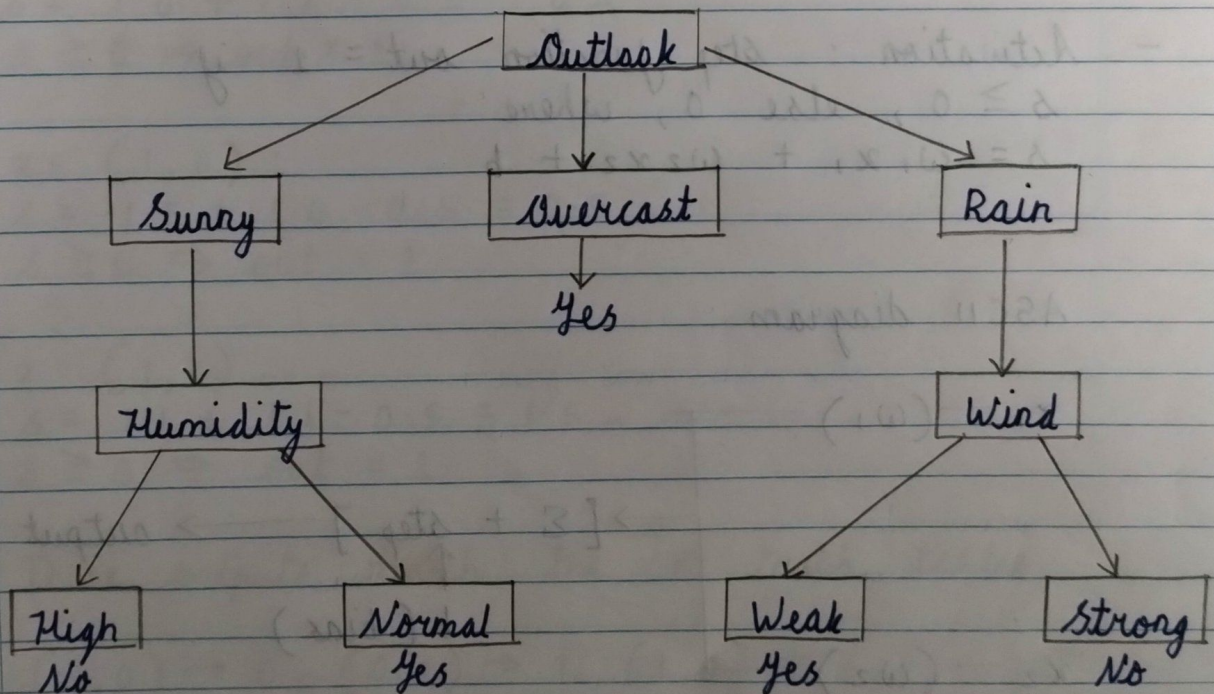 Outlook
Sunny Overcast Rain
Yes
Humidity Wind
High Normal Weak Strong
No Yes Yes No